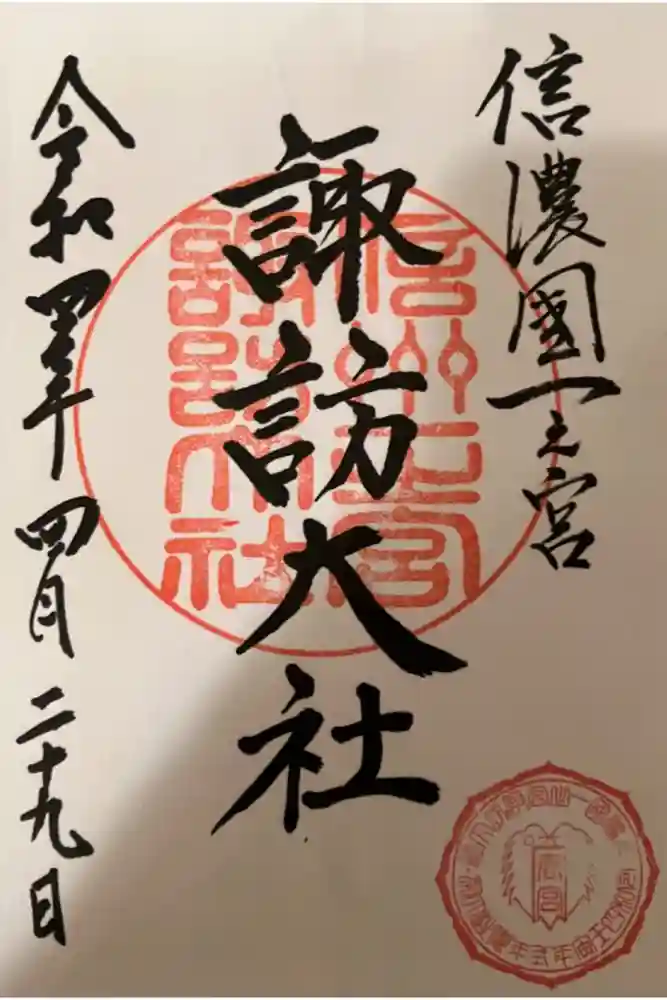 信濃國一之宮
諏訪大社
令和四年四月二十九日
信州一宮
諏訪大社